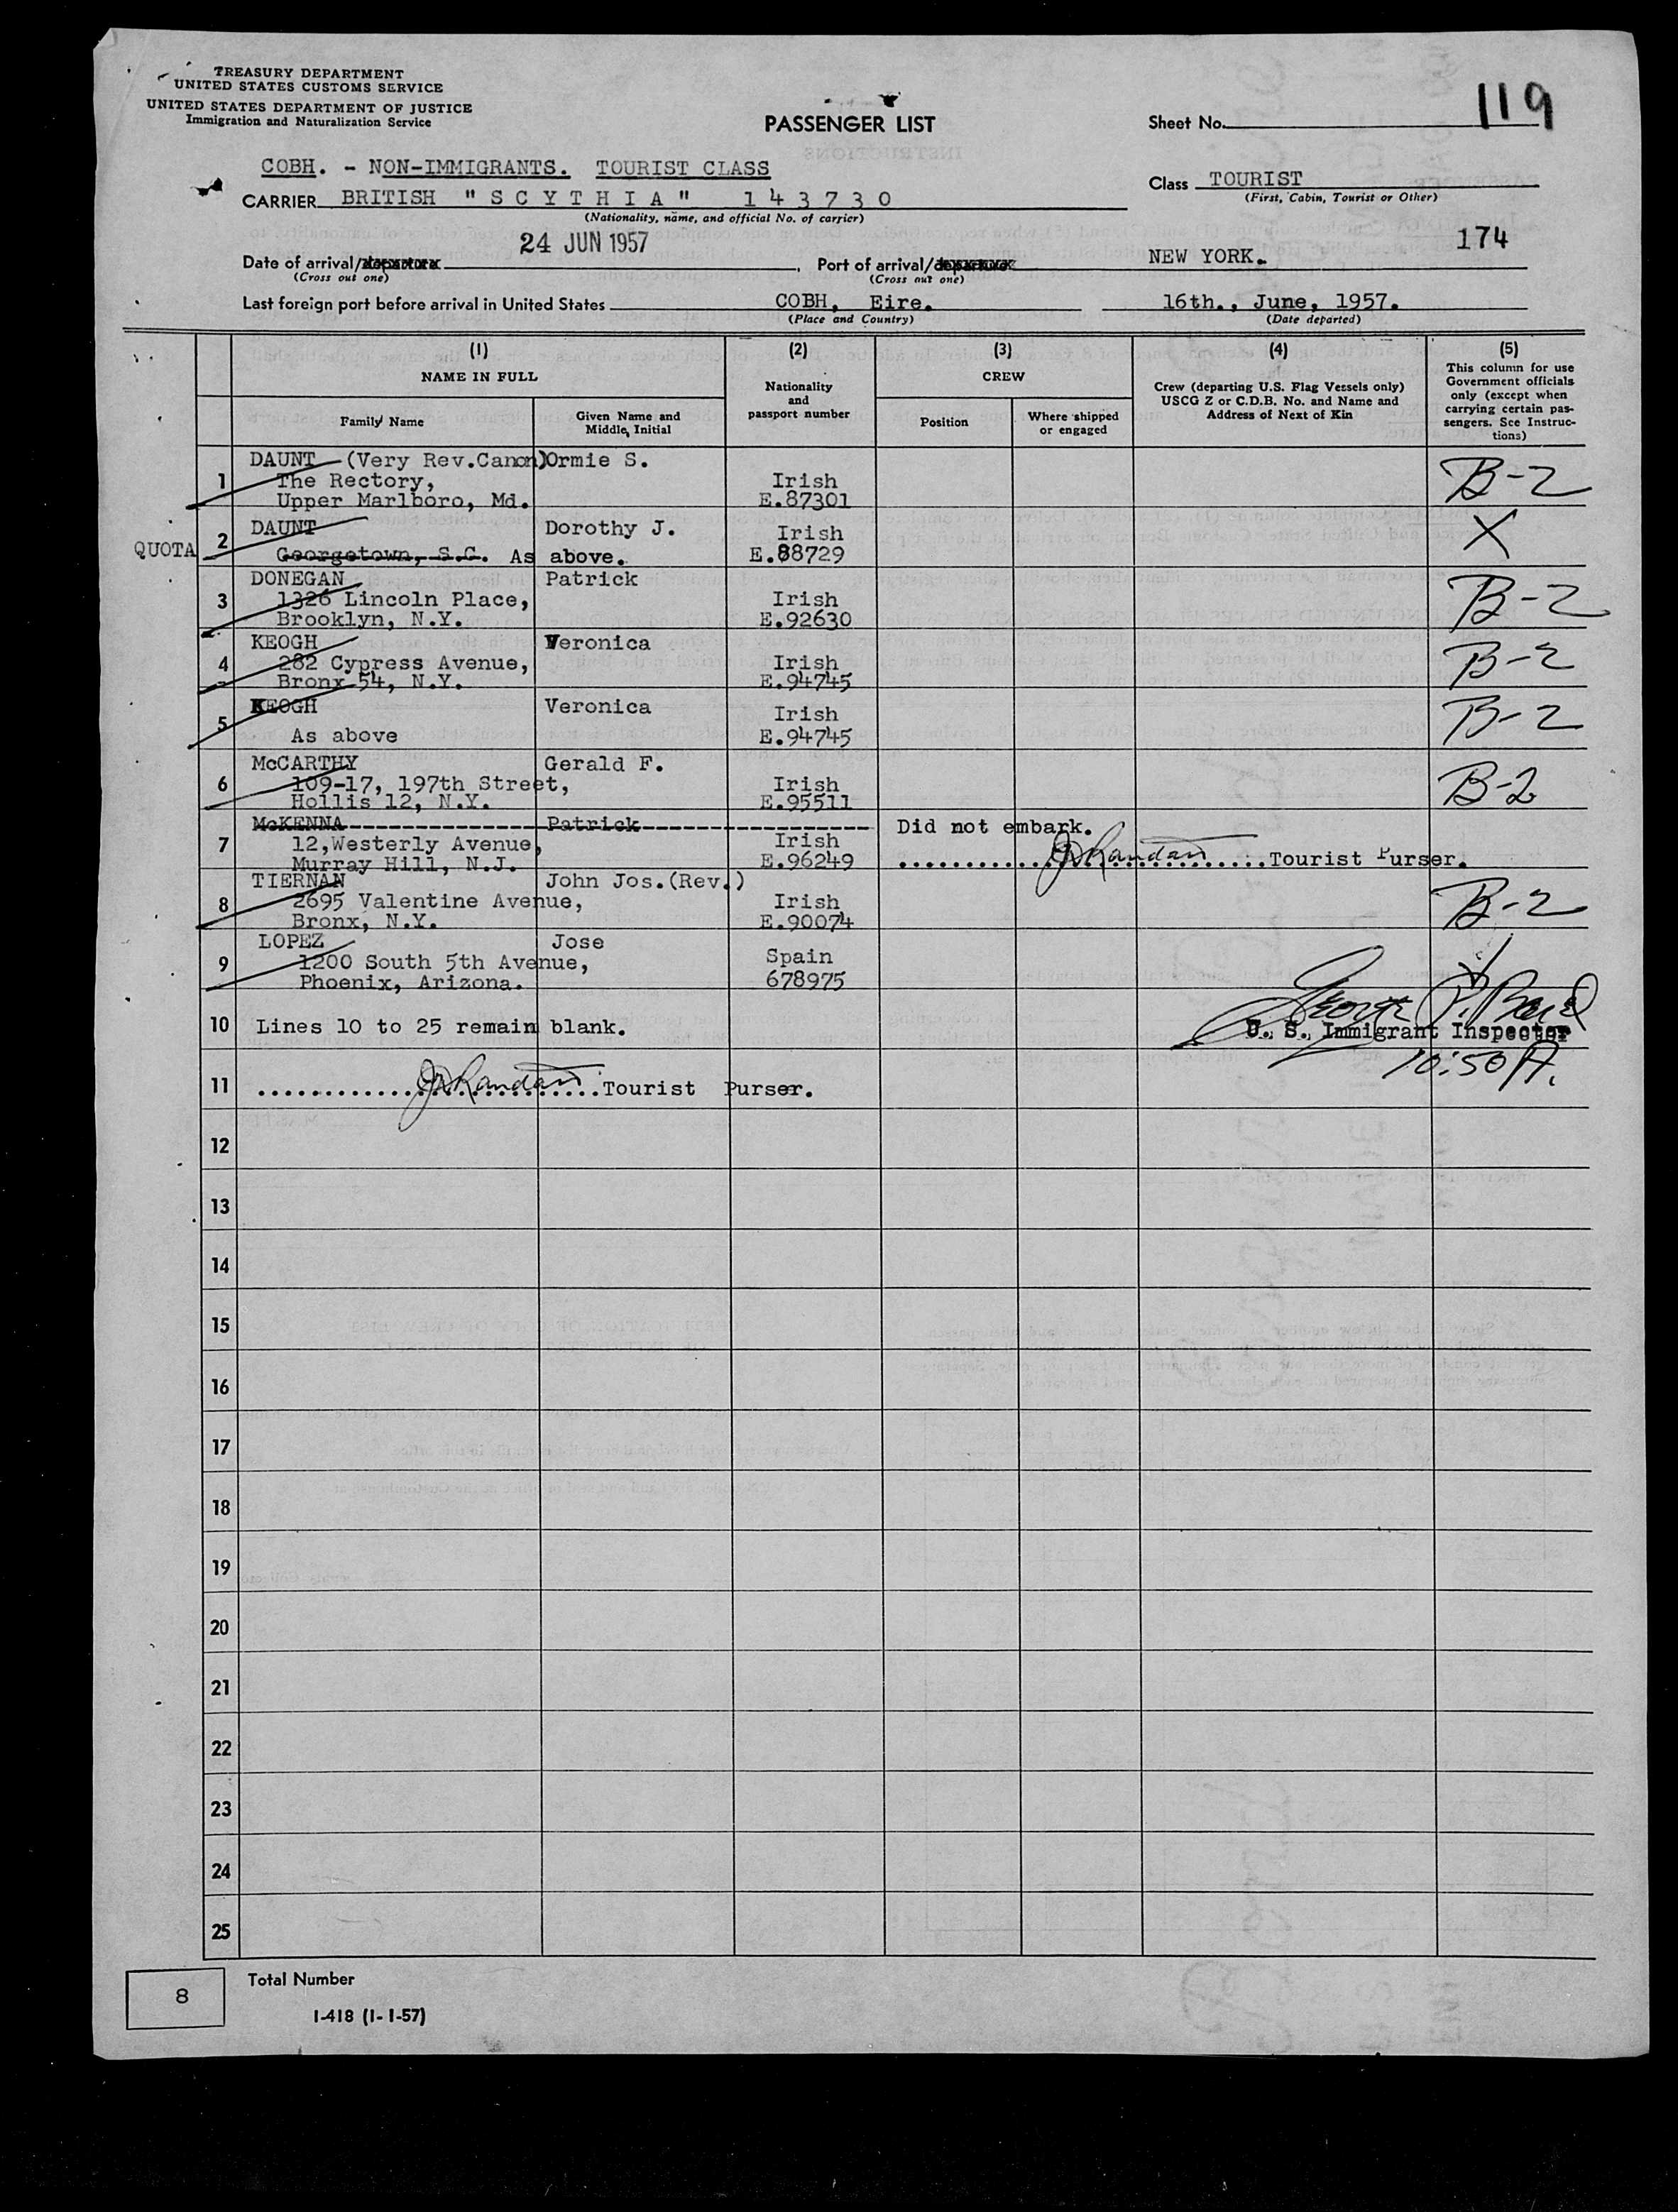 TREASURY DEPARTMENT
UNITED STATES CUSTOMS SERVICE
UNITED STATES DEPARTMENT OF JUSTICE
Immigration and Naturalization Service
PASSENGER LIST
Sheet No. 119
COBH. - NON-IMMIGRANTS. TOURIST CLASS
Class TOURIST
(First, Cabin, Tourist or Other)
CARRIER BRITISH "SCYTHIA" 143730
(Nationality, name, and official No. of carrier)
24 JUN 1957
174
Date of arrival/departure
(Cross out one)
Port of arrival/departure NEW YORK.
(Cross out one)
Last foreign port before arrival in United States COBH, Eire. 16th., June, 1957.
(Place and Country) (Date departed)
(1) (2) (3) (4) (5)
NAME IN FULL
Family Name
Given Name and Middle Initial
Nationality and passport number
CREW
Position
Where shipped or engaged
Crew (departing U.S. Flag Vessels only) USCG Z or C.D.B. No. and Name and Address of Next of Kin
This column for use Government officials only (except when carrying certain passengers. See Instructions)
1 DAUNT (Very Rev.Canon) Ormie S.
The Rectory, Irish B-2
Upper Marlboro, Md. E.87301
2 DAUNT Dorothy J. Irish X
QUOTA Georgetown, S.C. As above. E.88729
3 DONEGAN Patrick
1326 Lincoln Place, Irish B-2
Brooklyn, N.Y. E.92630
4 KEOGH Veronica
282 Cypress Avenue, Irish B-2
Bronx 54, N.Y. E.94745
5 KEOGH Veronica Irish B-2
As above E.94745
6 McCARTHY Gerald F.
109-17, 197th Street, Irish B-2
Hollis 12, N.Y. E.95511
7 McKENNA Patrick Did not embark.
12,Westerly Avenue, Irish
Murray Hill, N.J. E.96249 Tourist Purser.
8 TIERNAN John Jos.(Rev.)
2695 Valentine Avenue, Irish B-2
Bronx, N.Y. E.90074
9 LOPEZ Jose
1200 South 5th Avenue, Spain
Phoenix, Arizona. 678975
10 Lines 10 to 25 remain blank.
U. S. Immigrant Inspector
10:50 A.
11 Tourist Purser.
12
13
14
15
16
17
18
19
20
21
22
23
24
25
8 Total Number
I-418 (1-1-57)